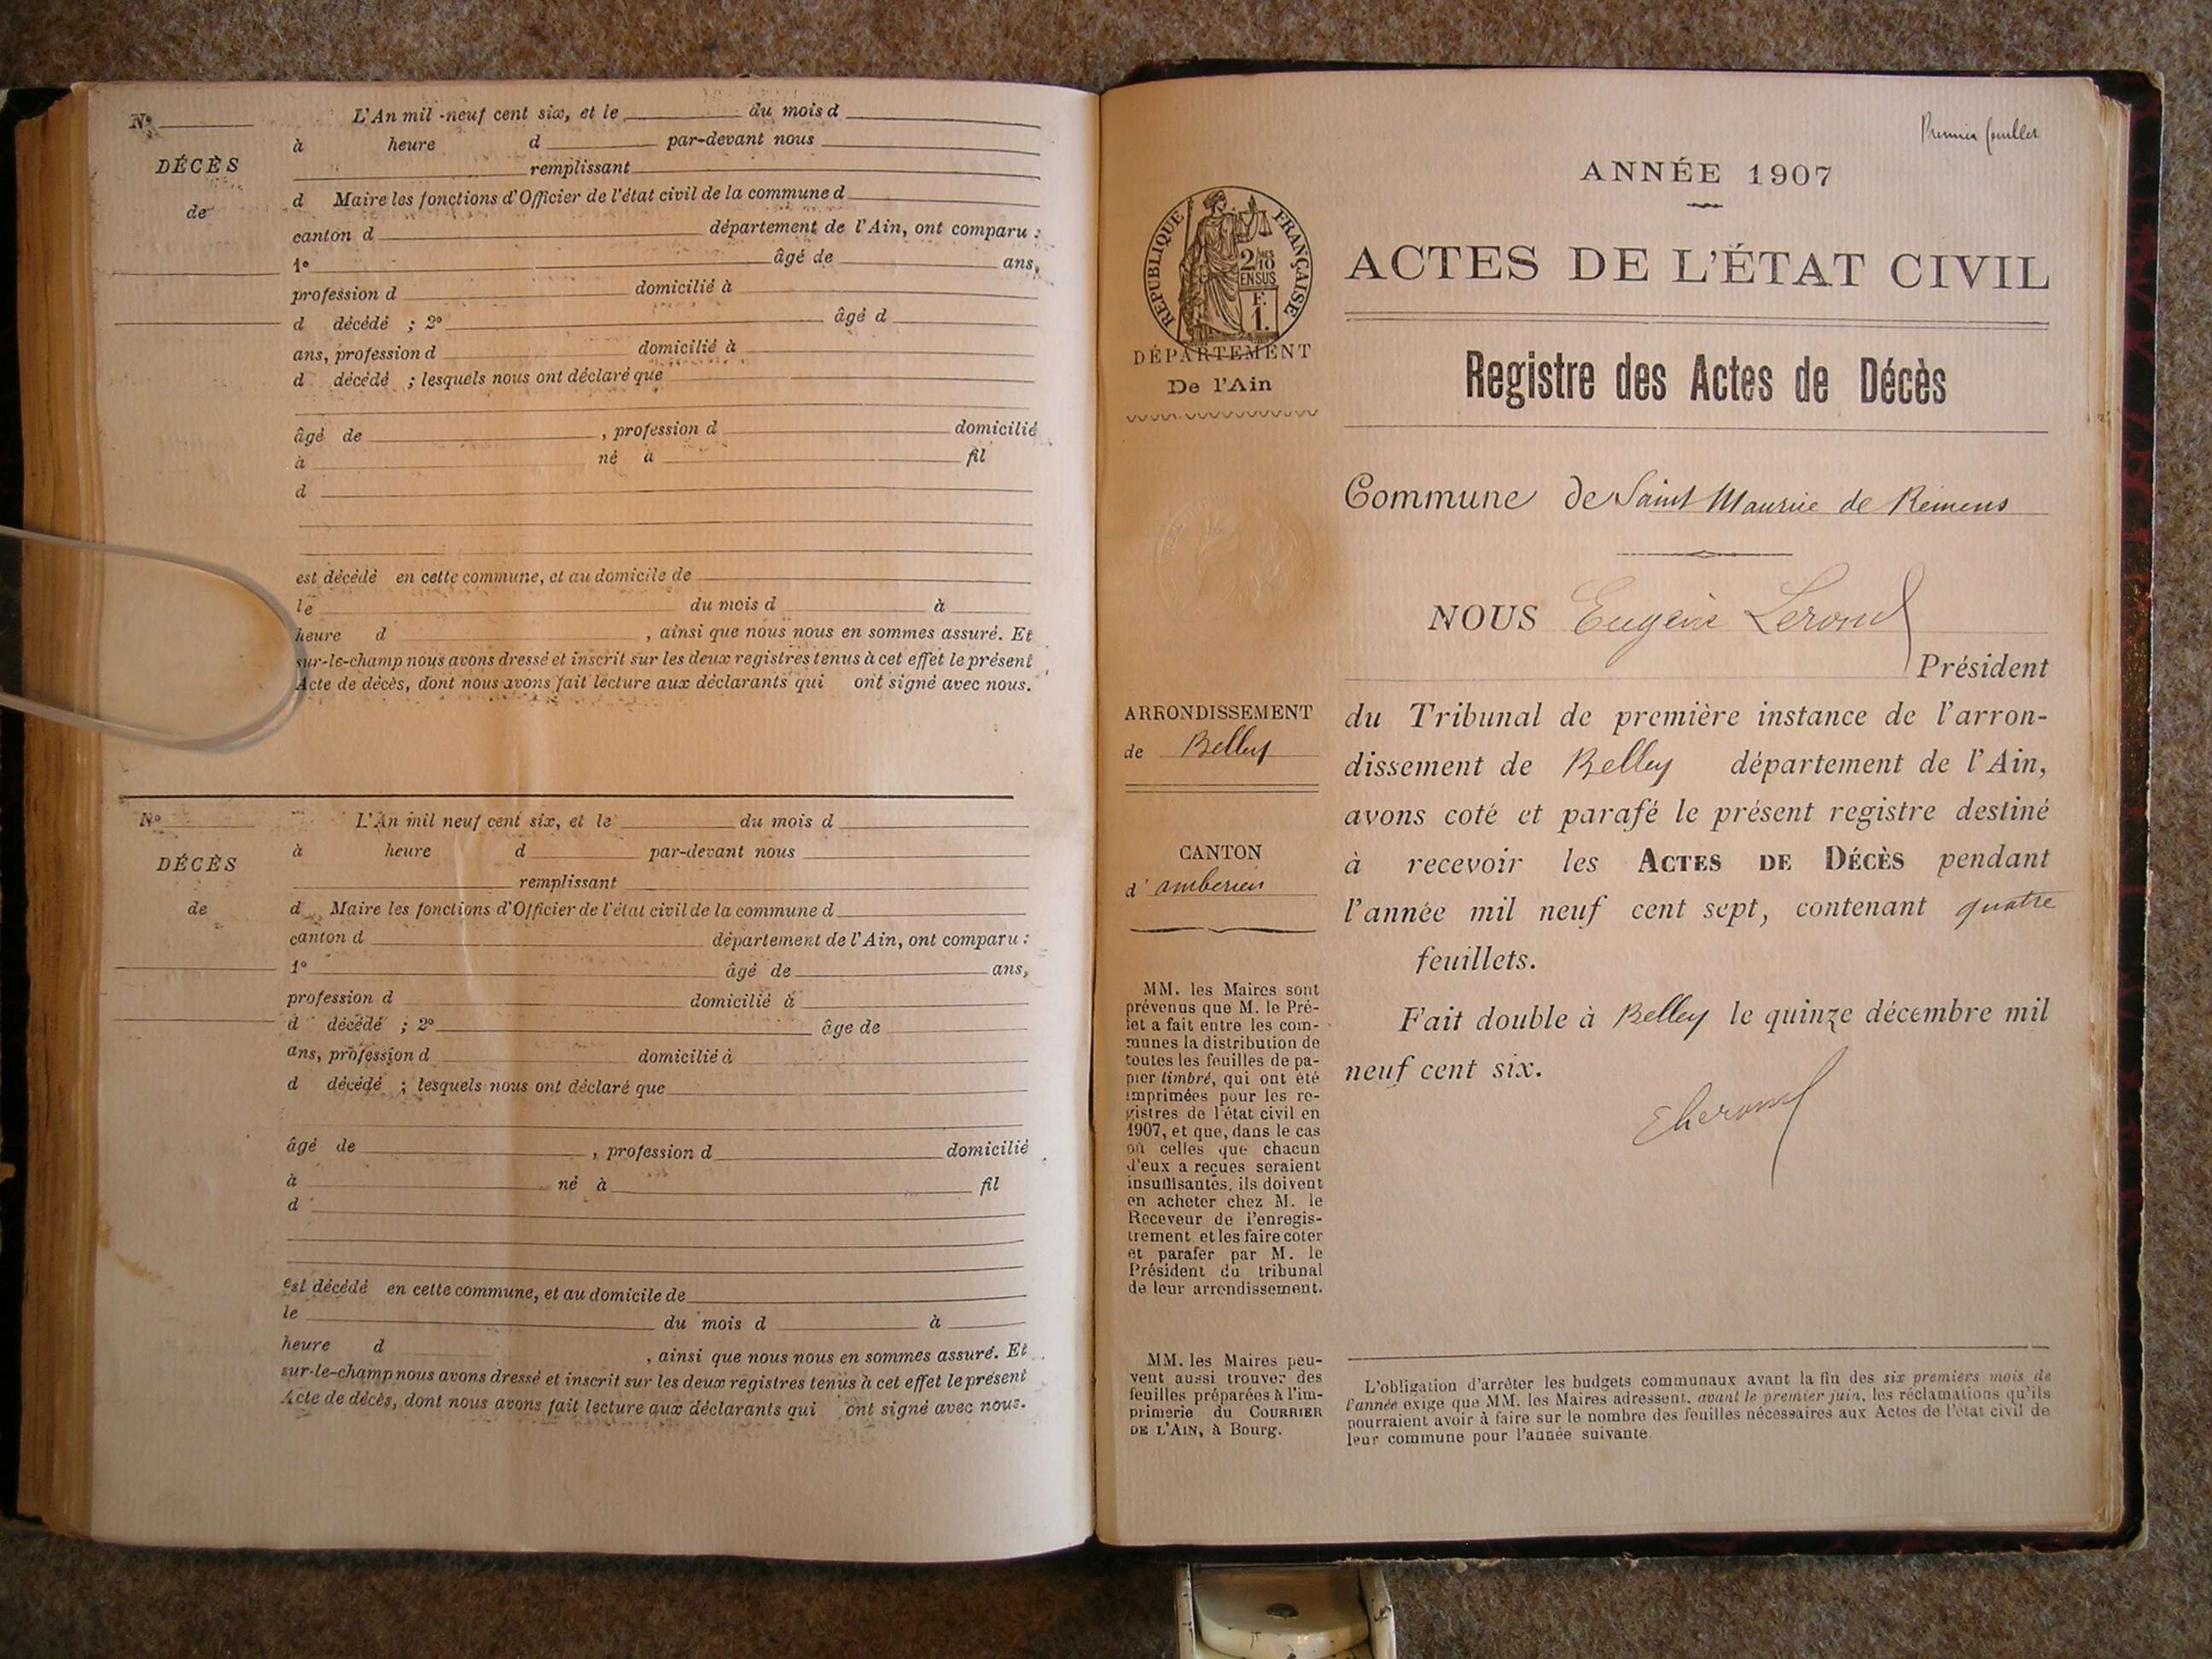 Nº
DÉCÈS
de
L'An mil neuf cent six, et le du mois d
à heure d par-devant nous
remplissant
d Maire les fonctions d'Officier de l'état civil de la commune d
canton d département de l'Ain, ont comparu :
1º âgé de ans,
profession d domicilié à
d décédé ; 2º âgé d
ans, profession d domicilié à
d décédé ; lesquels nous ont déclaré que
âgé de , profession d domicilié
à né à fil
d
est décédé en cette commune, et au domicile de
le du mois d à
heure d , ainsi que nous nous en sommes assuré. Et
sur-le-champ nous avons dressé et inscrit sur les deux registres tenus à cet effet le présent
Acte de décès, dont nous avons fait lecture aux déclarants qui ont signé avec nous.
Nº
DÉCÈS
de
L'An mil neuf cent six, et le du mois d
à heure d par-devant nous
remplissant
d Maire les fonctions d'Officier de l'état civil de la commune d
canton d département de l'Ain, ont comparu :
1º âgé de ans,
profession d domicilié à
d décédé ; 2º âge de
ans, profession d domicilié à
d décédé ; lesquels nous ont déclaré que
âgé de , profession d domicilié
à né à fil
d
est décédé en cette commune, et au domicile de
le du mois d à
heure d , ainsi que nous nous en sommes assuré. Et
sur-le-champ nous avons dressé et inscrit sur les deux registres tenus à cet effet le présent
Acte de décès, dont nous avons fait lecture aux déclarants qui ont signé avec nous.
Premier feuillet
RÉPUBLIQUE FRANÇAISE
2/10
EN SUS
F.
1.
DÉPARTEMENT
De l'Ain
ARRONDISSEMENT
de Belley
CANTON
d'ambérieu
MM. les Maires sont
prévenus que M. le Pré-
fet a fait entre les com-
munes la distribution de
toutes les feuilles de pa-
pier timbré, qui ont été
imprimées pour les re-
gistres de l'état civil en
1907, et que, dans le cas
où celles que chacun
d'eux a reçues seraient
insuffisantes, ils doivent
en acheter chez M. le
Receveur de l'enregis-
trement et les faire coter
et parafer par M. le
Président du tribunal
de leur arrondissement.
MM. les Maires peu-
vent aussi trouver des
feuilles préparées à l'im-
primerie du COURRIER
DE L'AIN, à Bourg.
ANNÉE 1907
ACTES DE L'ÉTAT CIVIL
Registre des Actes de Décès
Commune de Saint Maurice de Rémens
NOUS Eugène Lerond
Président
du Tribunal de première instance de l'arron-
dissement de Belley département de l'Ain,
avons coté et parafé le présent registre destiné
à recevoir les ACTES DE DÉCÈS pendant
l'année mil neuf cent sept, contenant quatre
feuillets.
Fait double à Belley le quinze décembre mil
neuf cent six.
L'obligation d'arrêter les budgets communaux avant la fin des six premiers mois de
l'année exige que MM. les Maires adressent, avant le premier juin, les réclamations qu'ils
pourraient avoir à faire sur le nombre des feuilles nécessaires aux Actes de l'état civil de
leur commune pour l'année suivante.